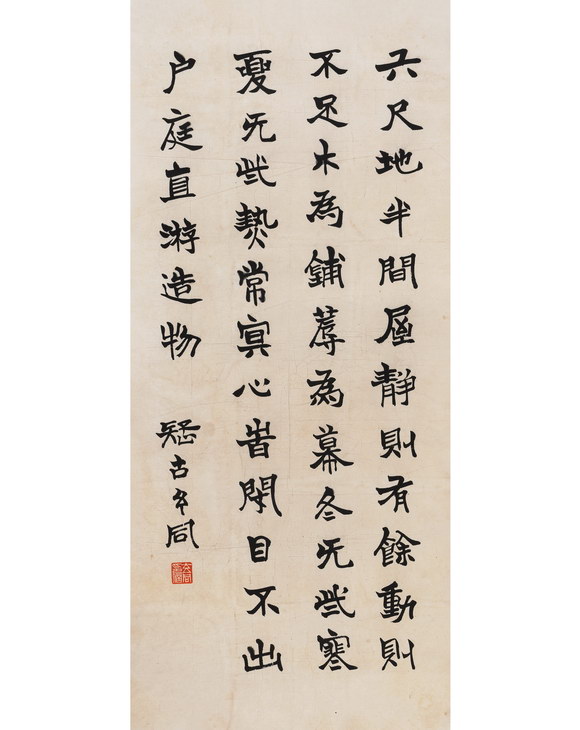 六尺地半間屋靜則有餘動則
不足木為鋪蓐為幕冬无些寒
夏无些熱常冥心旹閉目不出
户庭直游造物
疑古玄同